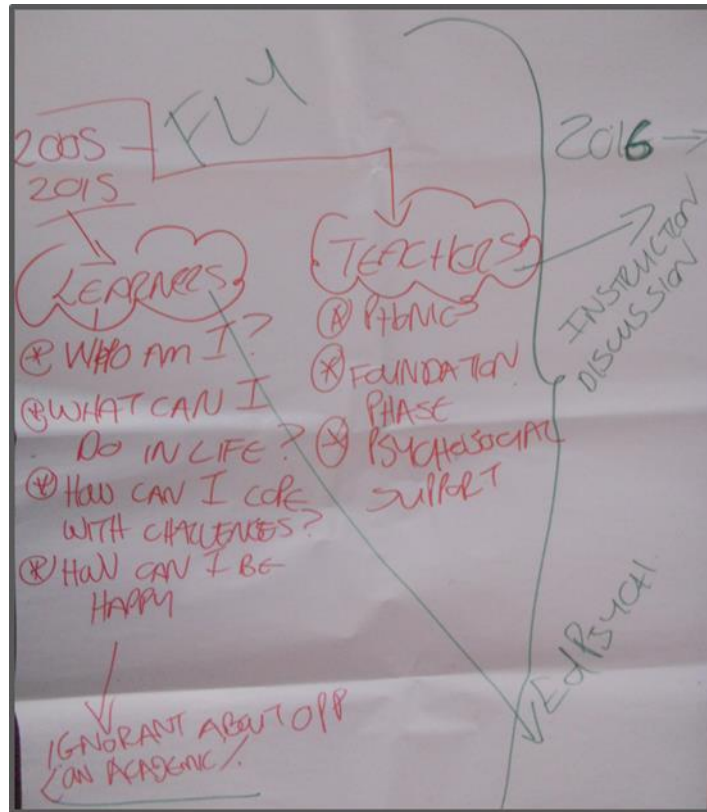 FLY
2005 -
2015
2016 →
LEARNERS
* WHO AM I?
* WHAT CAN I
DO IN LIFE?
* HOW CAN I COPE
WITH CHALLENGES?
* HOW CAN I BE
HAPPY
IGNORANT ABOUT OPP
(ON ACADEMIC
TEACHERS
* PHONICS
* FOUNDATION
PHASE
* PSYCHOSOCIAL
SUPPORT
INSTRUCTION
DISCUSSION
EdPSYCH